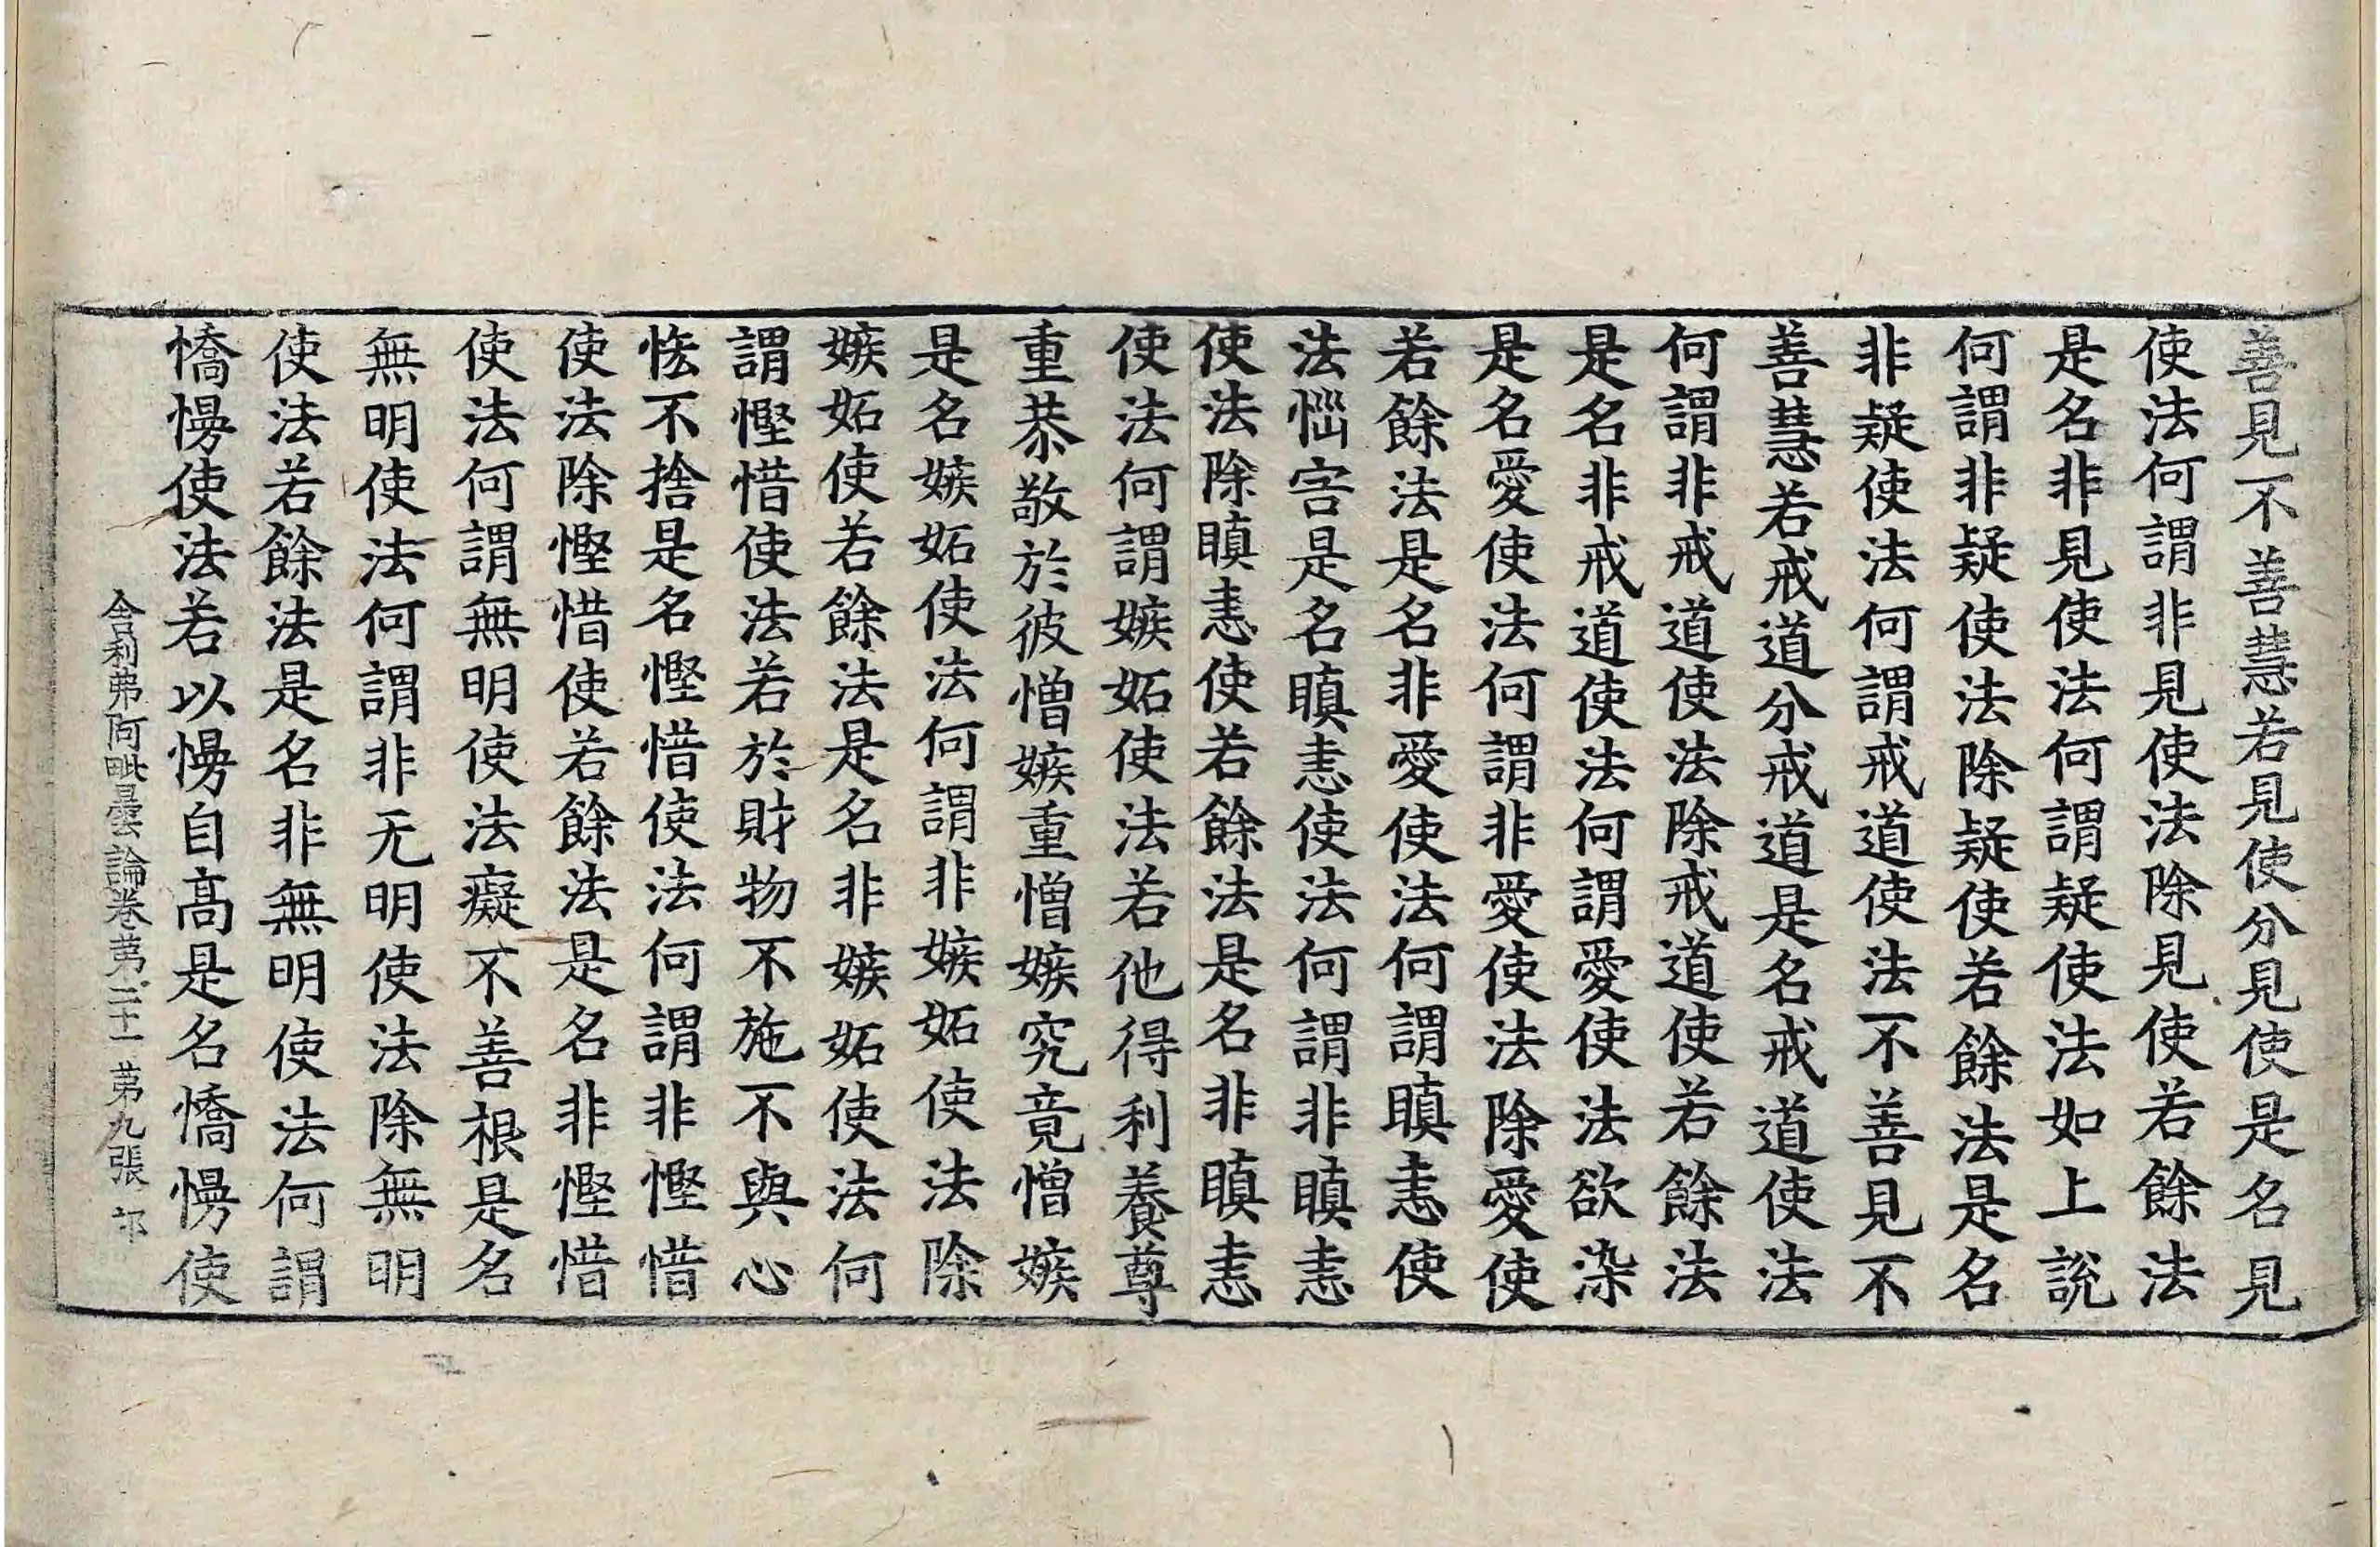 善見不善慧若見使分見使是名見
使法何謂非見使法除見使若餘法
是名非見使法何謂疑使法如上說
何謂非疑使法除疑使若餘法是名
非疑使法何謂戒道使法不善見不
善慧若戒道分戒道是名戒道使法
何謂非戒道使法除戒道使若餘法
是名非戒道使法何謂愛使法欲染
是名愛使法何謂非愛使法除愛使
若餘法是名非愛使法何謂瞋恚使
法惱害是名瞋恚使法何謂非瞋恚
使法除瞋恚使若餘法是名非瞋恚
使法何謂嫉妬使法若他得利養尊
重恭敬於彼憎嫉重憎嫉究竟憎嫉
是名嫉妬使法何謂非嫉妬使法除
嫉妬使若餘法是名非嫉妬使法何
謂慳惜使法若於財物不施不與心
悋不捨是名慳惜使法何謂非慳惜
使法除慳惜使若餘法是名非慳惜
使法何謂無明使法癡不善根是名
無明使法何謂非无明使法除無明
使法若餘法是名非無明使法何謂
憍慢使法若以慢自高是名憍慢使
舍利弗阿毗曇論卷第二十一 第九張